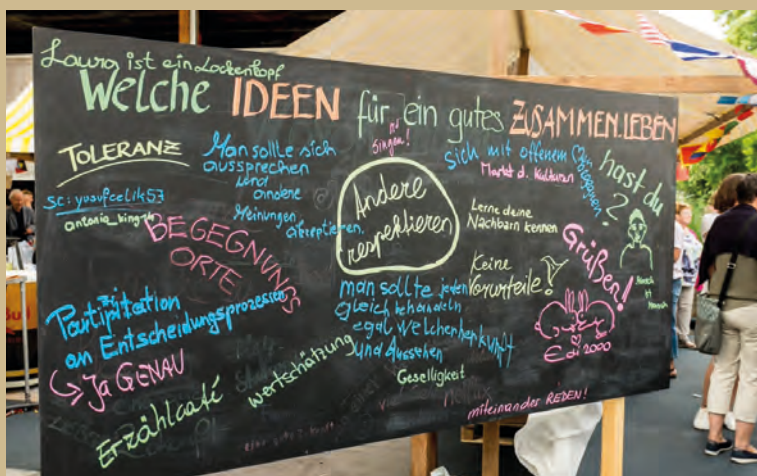 Laura ist ein Lockenkopf
Welche IDEEN für ein gutes ZUSAMMEN.LEBEN
hast du
?
TOLERANZ
sc: yusufcelik57
antonia_king74
Man sollte sich
aussprechen
und
andere
Meinungen
akzeptieren.
Singen!
Andere
respektieren
sich mit offenem
begegnen
Markt d. Kulturen
Lerne deine
Nachbarn kennen
Keine
Vorurteile!
Grüßen!
Edi 2000
BEGEGNUNGS
ORTE
Partipitation
an Entscheidungsprozessen
Ja GENAU
Erzählcafé
Wertschätzung
man sollte jeden
gleich behandeln
egal welcher herkunft
und Aussehen
Geselligkeit
miteinander REDEN!